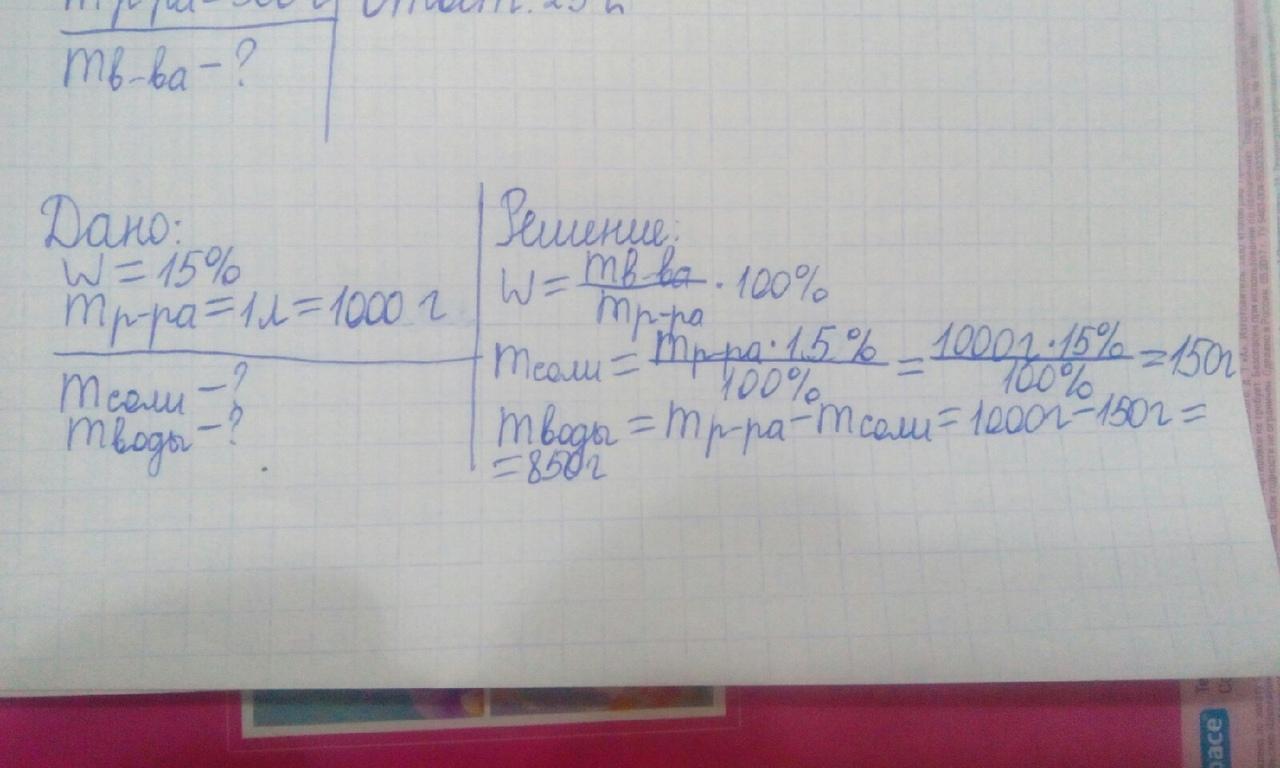 mв-ва - ?
Дано:
W = 15%
mр-ра = 1л = 1000 г
mсоли - ?
mводы - ?
Решение:
W = mв-ва / mр-ра · 100%
mсоли = mр-ра · 15% / 100% = 1000г · 15% / 100% = 150г
mводы = mр-ра - mсоли = 1000г - 150г =
= 850г